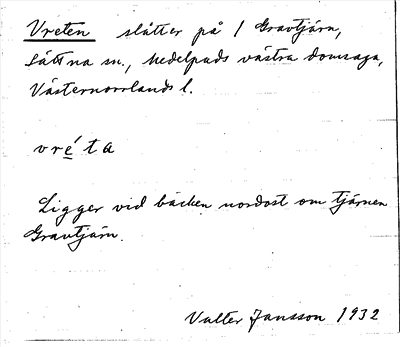 Vreten slåtter på 1 Gravtjärn,
Sättna sn., Medelpads västra domsaga,
Västernorrlands l.
vré̲ta
Ligger vid bäcken nordost om tjärnen
Gravtjärn.
Valter Jansson 1932